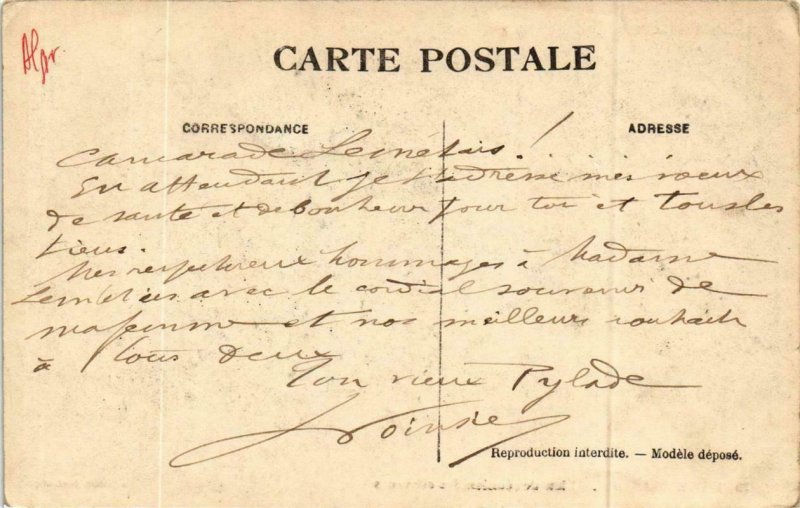 CARTE POSTALE
CORRESPONDANCE
ADRESSE
Camarade !
En attendant je t'adresse mes voeux
de santé et de bonheur pour toi et tous les
tiens.
Mes respectueux hommages à Madame
avec le cordial souvenir de
ma femme et nos meilleurs souhaits
à tous deux
Ton vieux Pylade
Reproduction interdite. — Modèle déposé.